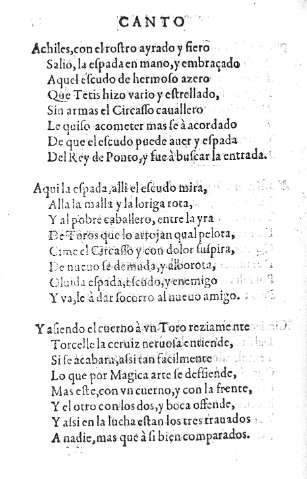 CANTO
Achiles, con el rostro ayrado y fiero
Salio, la espada en mano, y embraçado
Aquel escudo de hermoso azero
Que Tetis hizo vario y estrellado,
Sin armas el Circasso cauallero
Le quiso acometer mas se à acordado
De que el escudo puede auer y espada
Del Rey de Ponto, y fue à buscar la entrada.
Aqui la espada, alli el escudo mira,
Alla la malla y la loriga rota,
Y al pobre caballero, entre la yra
De Toros que lo arrojan qual pelota,
Gime el Circasso y con dolor suspira,
De nueuo se demuda, y alborota,
Oluida espada, escudo, y enemigo
Y va, le à dar socorro al nueuo amigo.
Y asiendo el cuerno à vn Toro reziamente
Torcelle la ceruiz neruosa entiende,
Si se acabara, assi tan facilmente
Lo que por Magica arte se deffiende,
Mas este, con vn cuerno, y con la frente,
Y el otro con los dos, y boca offende,
Y assi en la lucha estan los tres trauados
A nadie, mas que à si bien comparados.